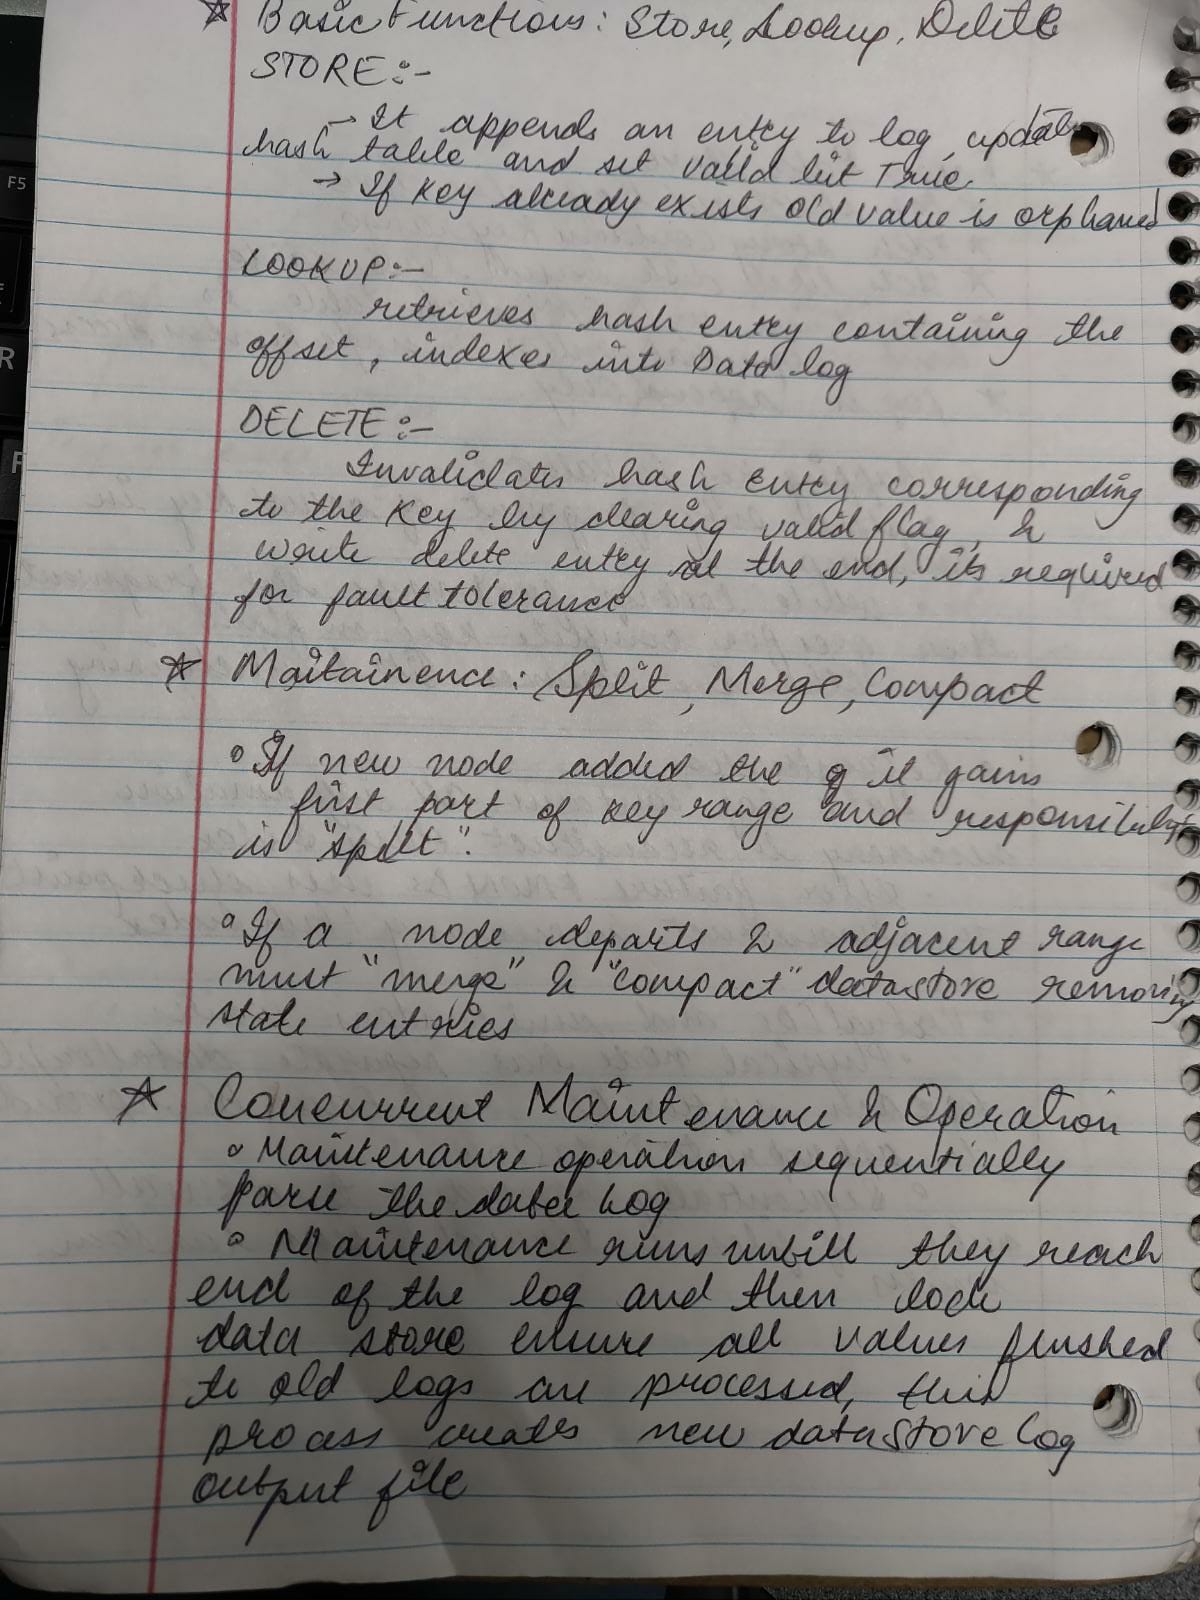 ☆ Basic Functions: Store, Lookup, Delete
STORE:-
→ It appends an entry to log, update
hash table and set valid bit True.
→ If key already exists old value is orphaned
LOOKUP:-
retrieves hash entry containing the
offset, indexes into Data log
DELETE:-
Invalidates hash entry corresponding
to the key by clearing valid flag, &
write delete entry at the end, its required
for fault tolerance
☆ Maitainence: Split, Merge, Compact
° If new node added the it gains
first part of key range and responsibility
is "split".
° If a node departs 2 adjacent range
must "merge" & "compact" datastore removing
stale entries
☆ Concurrent Maintenance & Operation
° Maintenance operation sequentially
parse the data log
° Maintenance runs untill they reach
end of the log and then lock
data store ensure all values flushed
to old logs are processed, this
process creates new datastore log
output file
F5
R
F